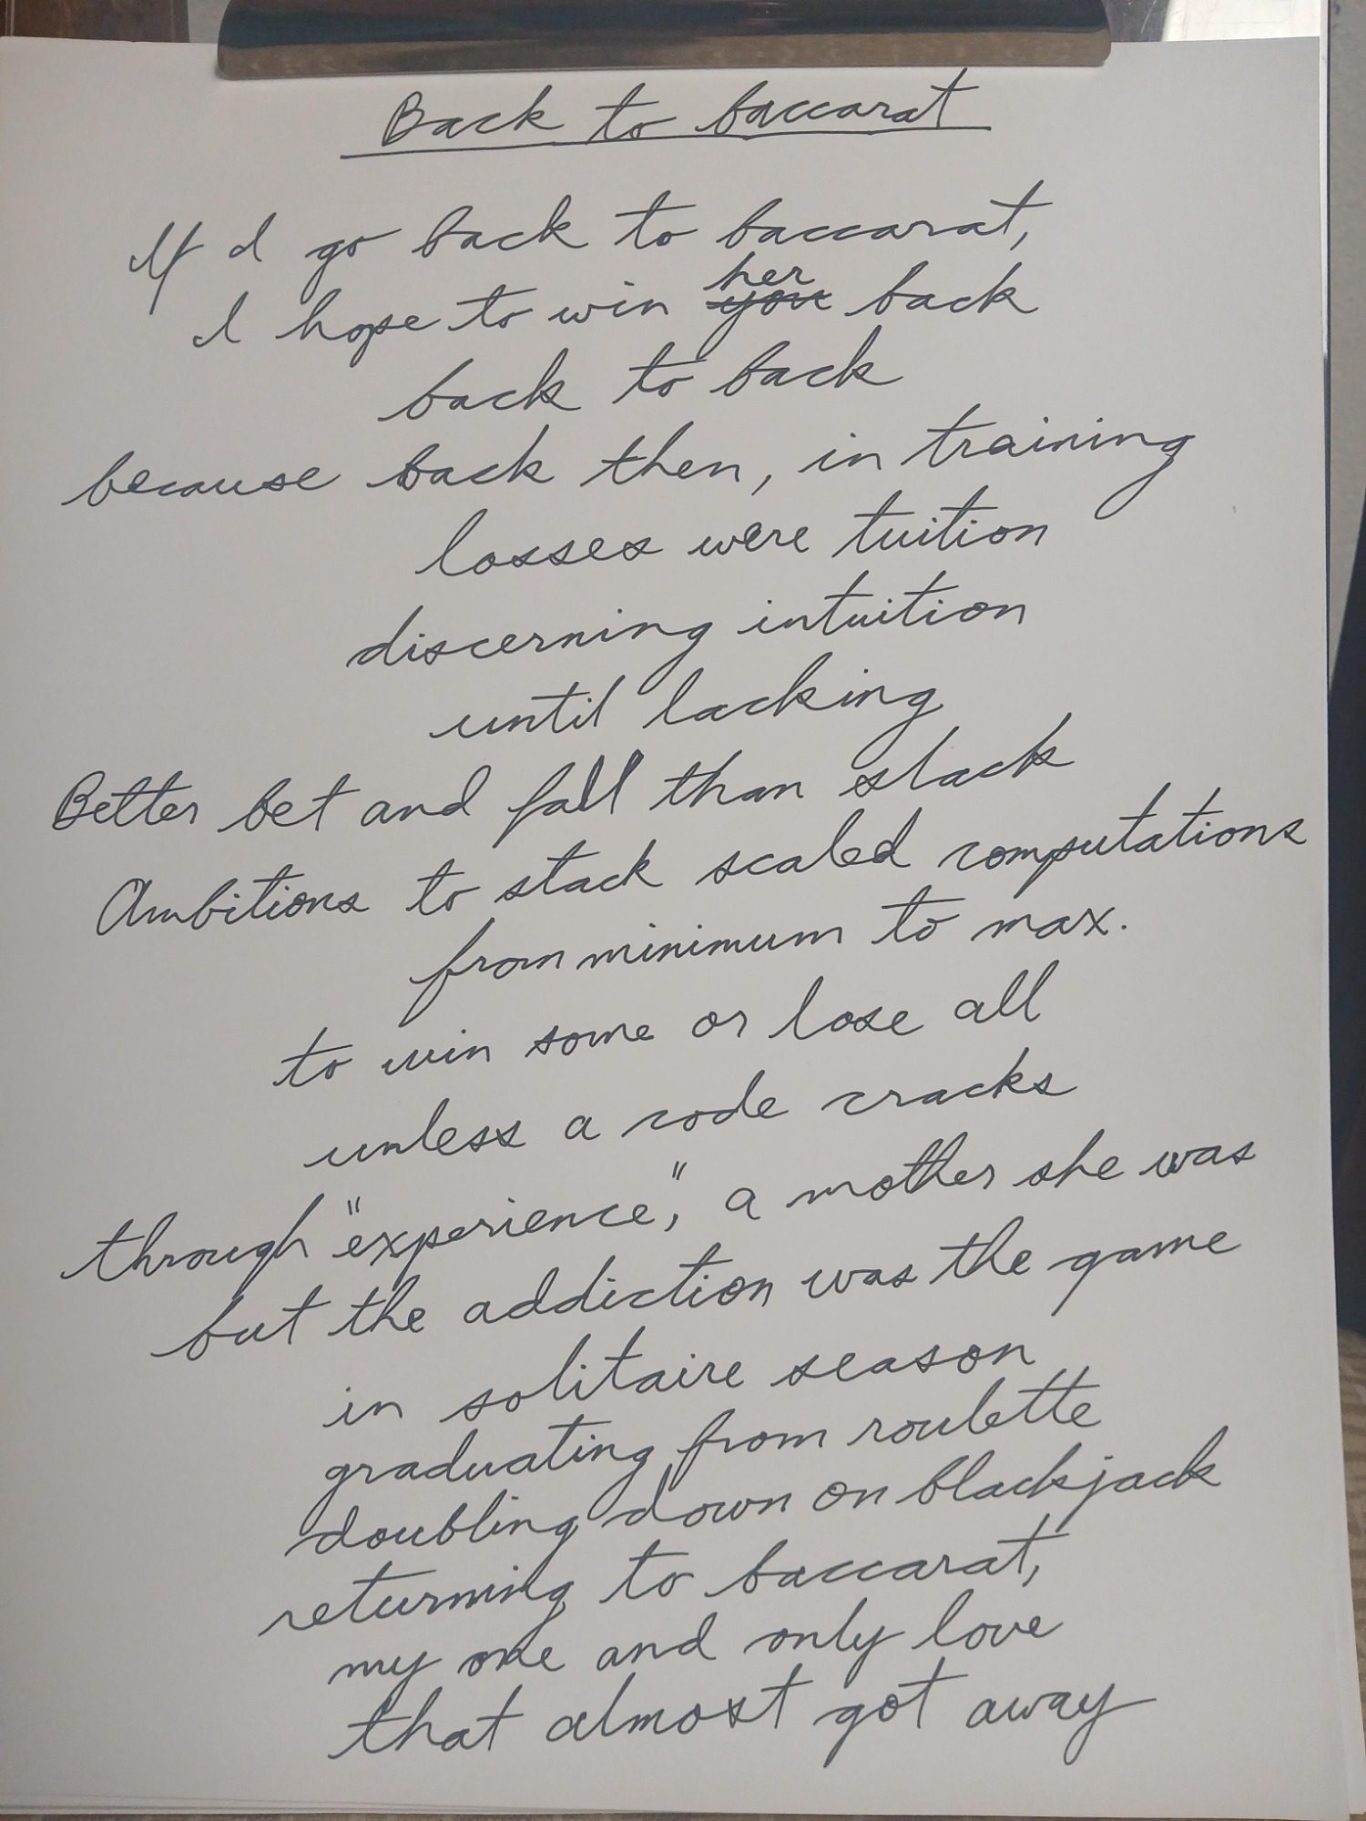 Back to baccarat
If I go back to baccarat,
I hope to win her back
back to back
because back then, in training
losses were tuition
discerning intuition
until lacking
Better bet and fall than slack
Ambitions to stack scaled computations
from minimum to max.
to win some or lose all
unless a code cracks
through "experience," a mother she was
but the addiction was the game
in solitaire season
graduating from roulette
doubling down on blackjack
returning to baccarat,
my one and only love
that almost got away